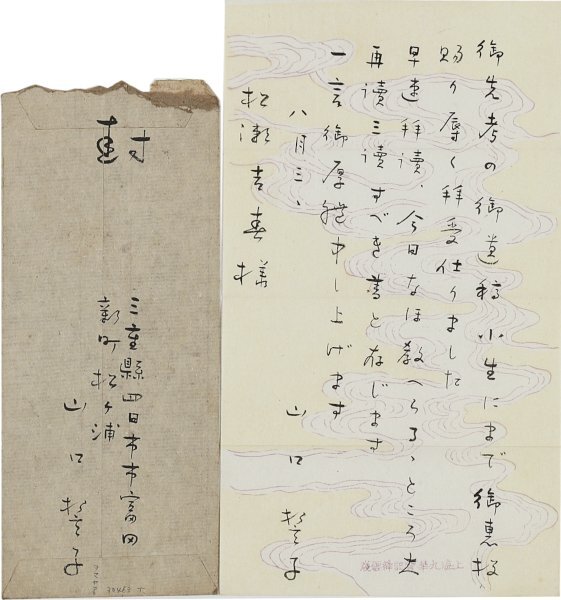 御先考の御遺稿小生にまで御恵投
賜り辱く拝受仕りました
早速拝讀、今日なほ教へらるゝところ大
再讀三讀すべき書と存じます
一言御厚禮申し上げます
八月三、
山口誓子
松瀬青春様
封
三重縣四日市市富田
新町松ヶ浦
山口誓子